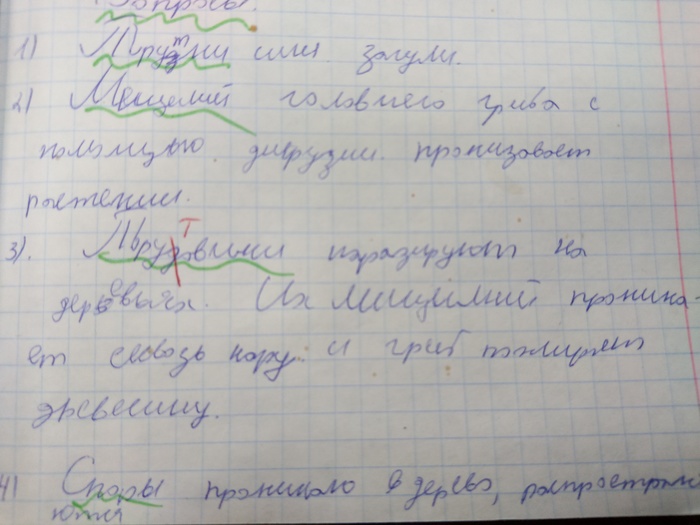 Вопросы.
1) Трутни или загули.
2) Мицелий головнего гриба с
помощью диффузии пронизовает
растении.
3). Трутовики паразируют на
деревьях. Их мицилий проника-
ет сквозь кору и гриб пожирает
древесину.
4) Споры проникаю в дерево, распространя
ются